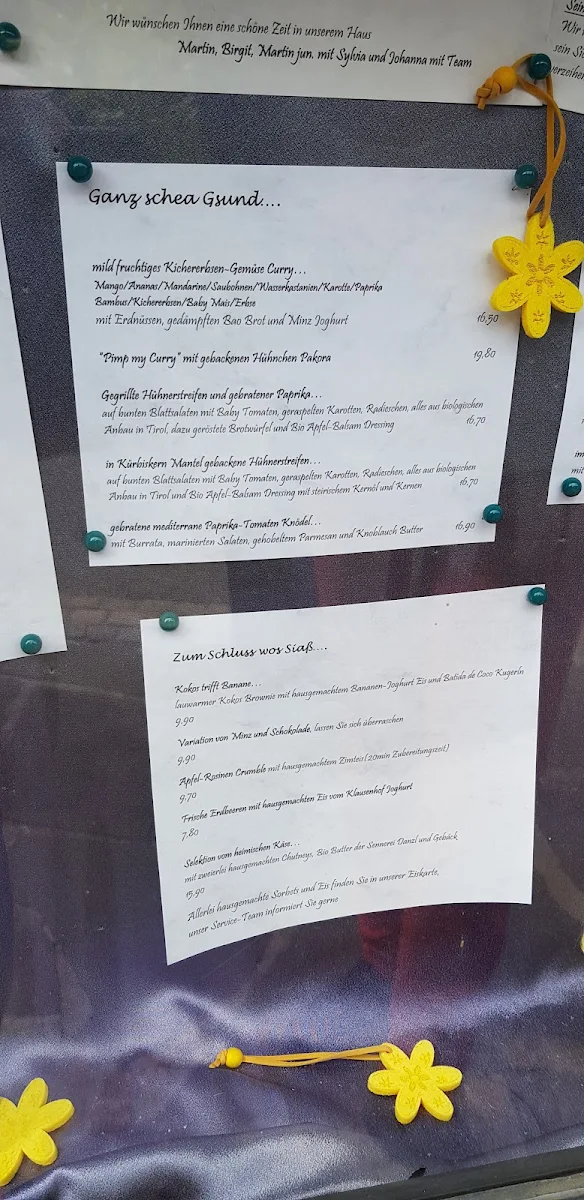 Wir wünschen Ihnen eine schöne Zeit in unserem Haus
Martin, Birgit, Martin jun. mit Sylvia und Johanna mit Team
Wir
sein Sie
verzeihen
Ganz schea Gsund....
mild fruchtiges Kichererbsen-Gemüse Curry...
Mango/Ananas/Mandarine/Saubohnen/Wasserkastanien/Karotte/Paprika
Bambus/Kichererbsen/Baby Mais/Erbse
mit Erdnüssen, gedämpften Bao Brot und Minz Joghurt 16,50
"Pimp my Curry" mit gebackenen Hühnchen Pakora 19,80
Gegrillte Hühnerstreifen und gebratener Paprika...
auf bunten Blattsalaten mit Baby Tomaten, geraspelten Karotten, Radieschen, alles aus biologischen
Anbau in Tirol, dazu geröstete Brotwürfel und Bio Apfel-Balsam Dressing 16,70
in Kürbiskern Mantel gebackene Hühnerstreifen...
auf bunten Blattsalaten mit Baby Tomaten, geraspelten Karotten, Radieschen, alles aus biologischen
Anbau in Tirol und Bio Apfel-Balsam Dressing mit steirischem Kernöl und Kernen 16,70
gebratene mediterrane Paprika-Tomaten Knödel...
mit Burrata, marinierten Salaten, gehobeltem Parmesan und Knoblauch Butter 16,90
Zum Schluss wos Siaß....
Kokos trifft Banane...
lauwarmer Kokos Brownie mit hausgemachtem Bananen-Joghurt Eis und Batida de Coco Kugerln
9,90
Variation von Minz und Schokolade, lassen Sie sich überraschen
9,90
Apfel-Rosinen Crumble mit hausgemachtem Zimteis(20min Zubereitungszeit)
9,70
Frische Erdbeeren mit hausgemachten Eis vom Klausenhof Joghurt
7,80
Selektion vom heimischen Käse...
mit zweierlei hausgemachten Chutneys, Bio Butter der Sennerei Danzl und Gebäck
15,90
Allerlei hausgemachte Sorbets und Eis finden Sie in unserer Eiskarte,
unser Service-Team informiert Sie gerne